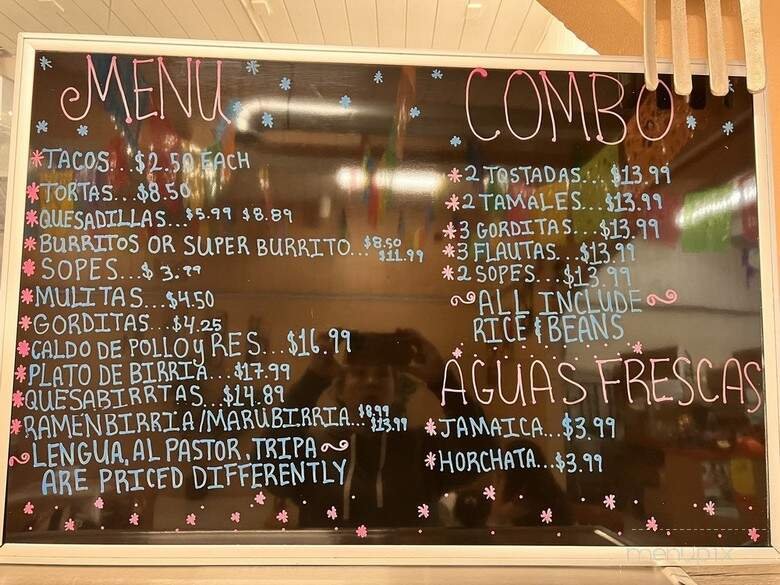 MENU
*TACOS...$2.50 EACH
*TORTAS...$8.50
*QUESADILLAS...$5.99 $8.89
*BURRITOS OR SUPER BURRITO...$8.50 $11.99
*SOPES...$3.99
*MULITAS...$4.50
*GORDITAS...$4.25
*CALDO DE POLLO y RES...$16.99
*PLATO DE BIRRIA...$17.99
*QUESABIRRTAS...$14.89
*RAMEN BIRRIA/MARUBIRRIA...$8.99 $13.99
LENGUA, AL PASTOR, TRIPA
ARE PRICED DIFFERENTLY
COMBO
*2 TOSTADAS...$13.99
*2 TAMALES...$13.99
*3 GORDITAS...$13.99
*3 FLAUTAS...$13.99
*2 SOPES...$13.99
ALL INCLUDE
RICE & BEANS
AGUAS FRESCAS
*JAMAICA...$3.99
*HORCHATA...$3.99
menupix